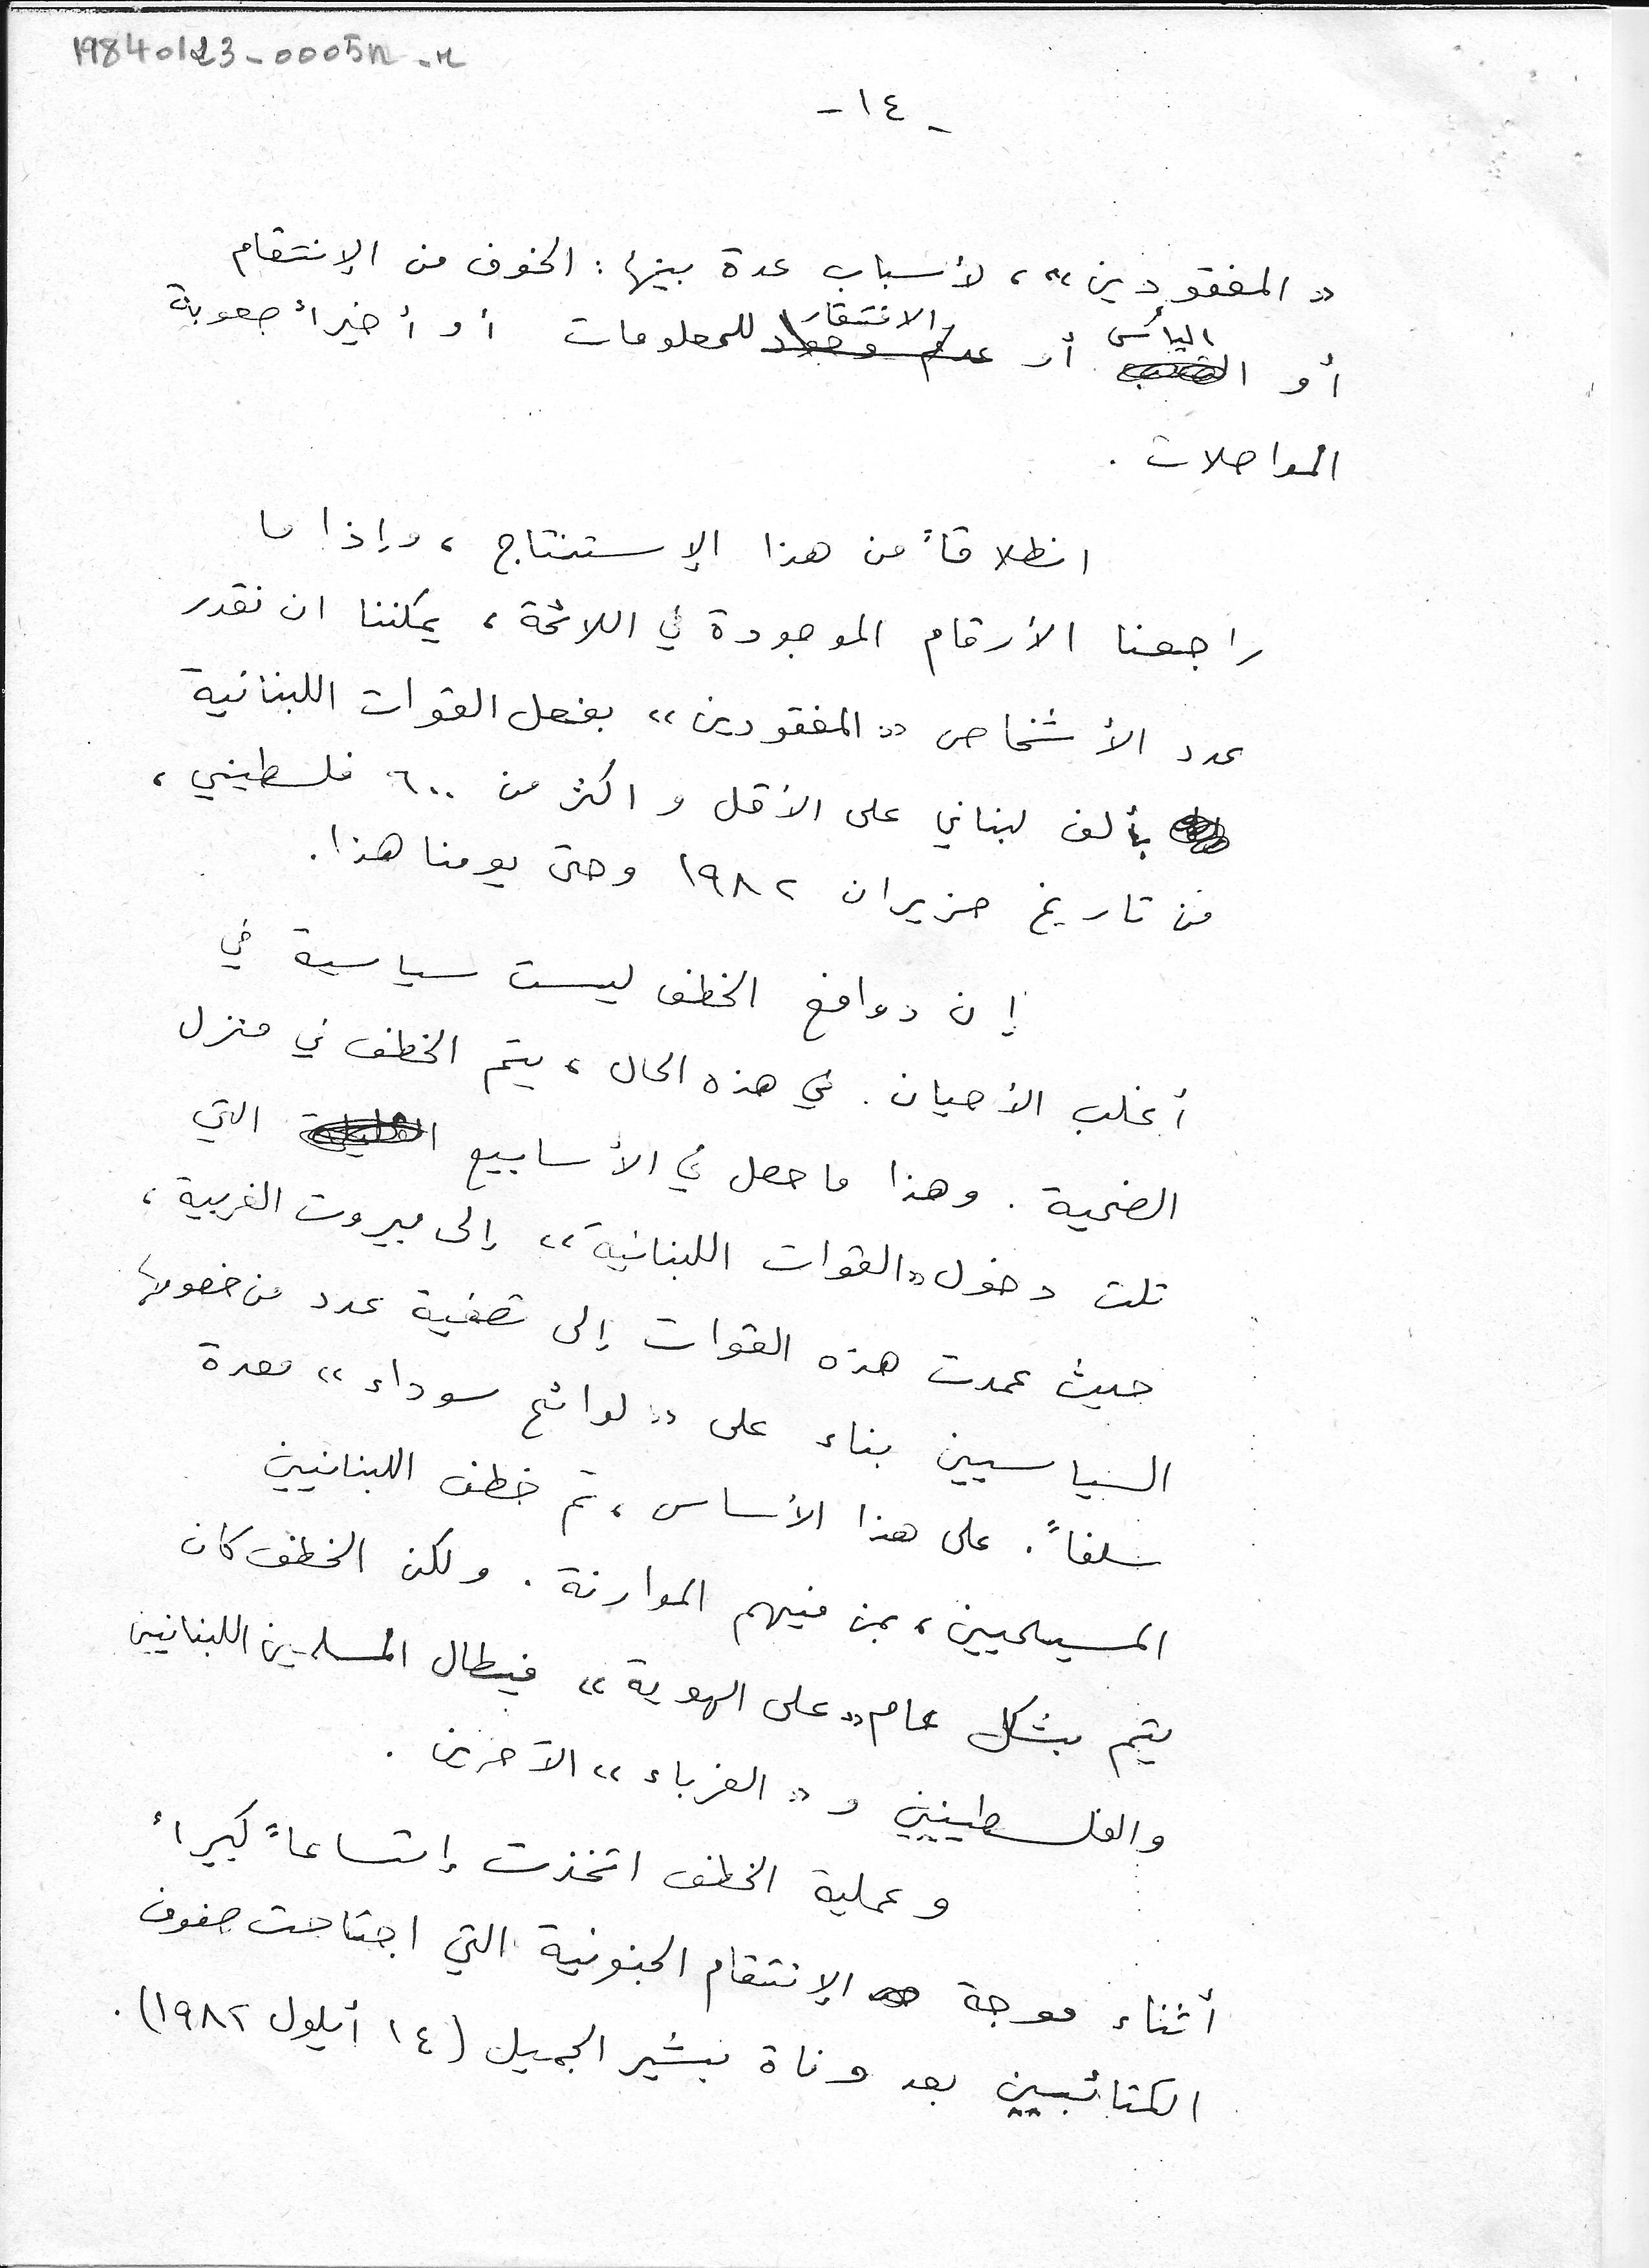 19840123-0005n-r
-١٤-
«المفقودين»، لأسباب عدة بينها: الخوف من الإنتقام
أو اليأس أو عدم وجود الافتقار للمعلومات أو أخيراً صعوبة
المواصلات.
انطلاقاً من هذا الإستنتاج، وإذا ما
راجعنا الأرقام الموجودة في اللائحة، يمكننا ان نقدر
عدد الأشخاص «المفقودين» بفعل القوات اللبنانية
بألف لبناني على الأقل و اكثر من ٦٠٠ فلسطيني،
من تاريخ حزيران ١٩٨٢ وحتى يومنا هذا.
إن دوافع الخطف ليست سياسية في
أغلب الأحيان. في هذه الحال، يتم الخطف في منزل
الضحية. وهذا ما حصل في الأسابيع التي
تلت دخول «القوات اللبنانية» إلى بيروت الغربية،
حيث عمدت هذه القوات إلى تصفية عدد من خصومها
السياسيين بناء على «لوائح سوداء» معدة
سلفاً. على هذا الأساس، تم خطف اللبنانيين
المسيحيين، بمن فيهم الموارنة. ولكن الخطف كان
يتم بشكل عام «على الهوية» فيطال المسلمين اللبنانيين
والفلسطينيين و «الغرباء» الآخرين.
وعملية الخطف اتخذت إتساعاً كبيراً
أثناء موجة الإنتقام الجنونية التي اجتاحت صفوف
الكتائبيين بعد وفاة بشير الجميل (١٤ أيلول ١٩٨٢).